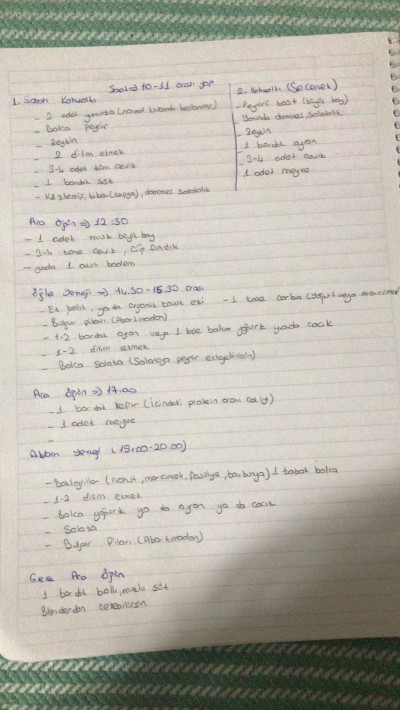 Saat => 10-11 arası yap
1. Sabah Kahvaltı
- 2 adet yumurta (normal kıvamda haşlanmış)
- Bolca peynir
- Zeytin
- 2 dilim ekmek
- 3-4 adet tüm ceviz
- 1 bardak süt
- Kızılcık, biber (kapya), domates salatalık
2. Kahvaltı (Seçenek)
- Peynirli tost (büyük boy)
Yanında domates, salatalık
- Zeytin
1 bardak ayran
3-4 adet ceviz
1 adet meyve
Ara Öğün => 12:30
- 1 adet muz büyük boy
- 3-4 tane ceviz, Çiğ fındık
- yada 1 avuç badem
Öğle Yemeği => 14.30-15.30 arası
- Et balık, yada organik tavuk eti - 1 kase çorba (veya mercimek)
- Bulgur pilavı (Abartmadan)
- 1-2 bardak ayran veya 1 kase bolca yoğurt yada cacık
- 1-2 dilim ekmek
- Bolca salata (Salataya peynir ekleyebilirsin)
Ara Öğün => 17.00
- 1 bardak kefir (içindeki protein oranı çok iyi)
- 1 adet meyve
-
Akşam Yemeği (19:00-20.00)
- Baklagiller (nohut, mercimek, fasulye, barbunya) 1 tabak bolca
- 1-2 dilim ekmek
- Bolca yoğurt ya da ayran ya da cacık
- Salata
- Bulgur Pilavı (Abartmadan)
Gece Ara Öğün
1 bardak ballı, muzlu süt
Blenderdan çekebilirsin